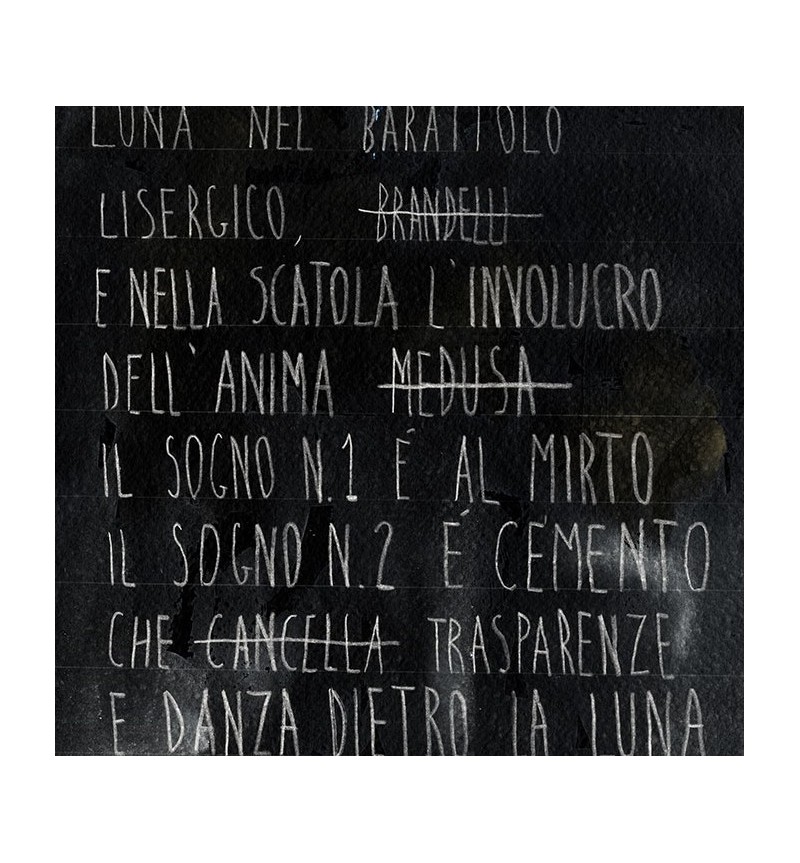 LUNA NEL BARATTOLO
LISERGICO, BRANDELLI
E NELLA SCATOLA L'INVOLUCRO
DELL'ANIMA MEDUSA
IL SOGNO N.1 É AL MIRTO
IL SOGNO N.2 É CEMENTO
CHE CANCELLA TRASPARENZE
E DANZA DIETRO LA LUNA